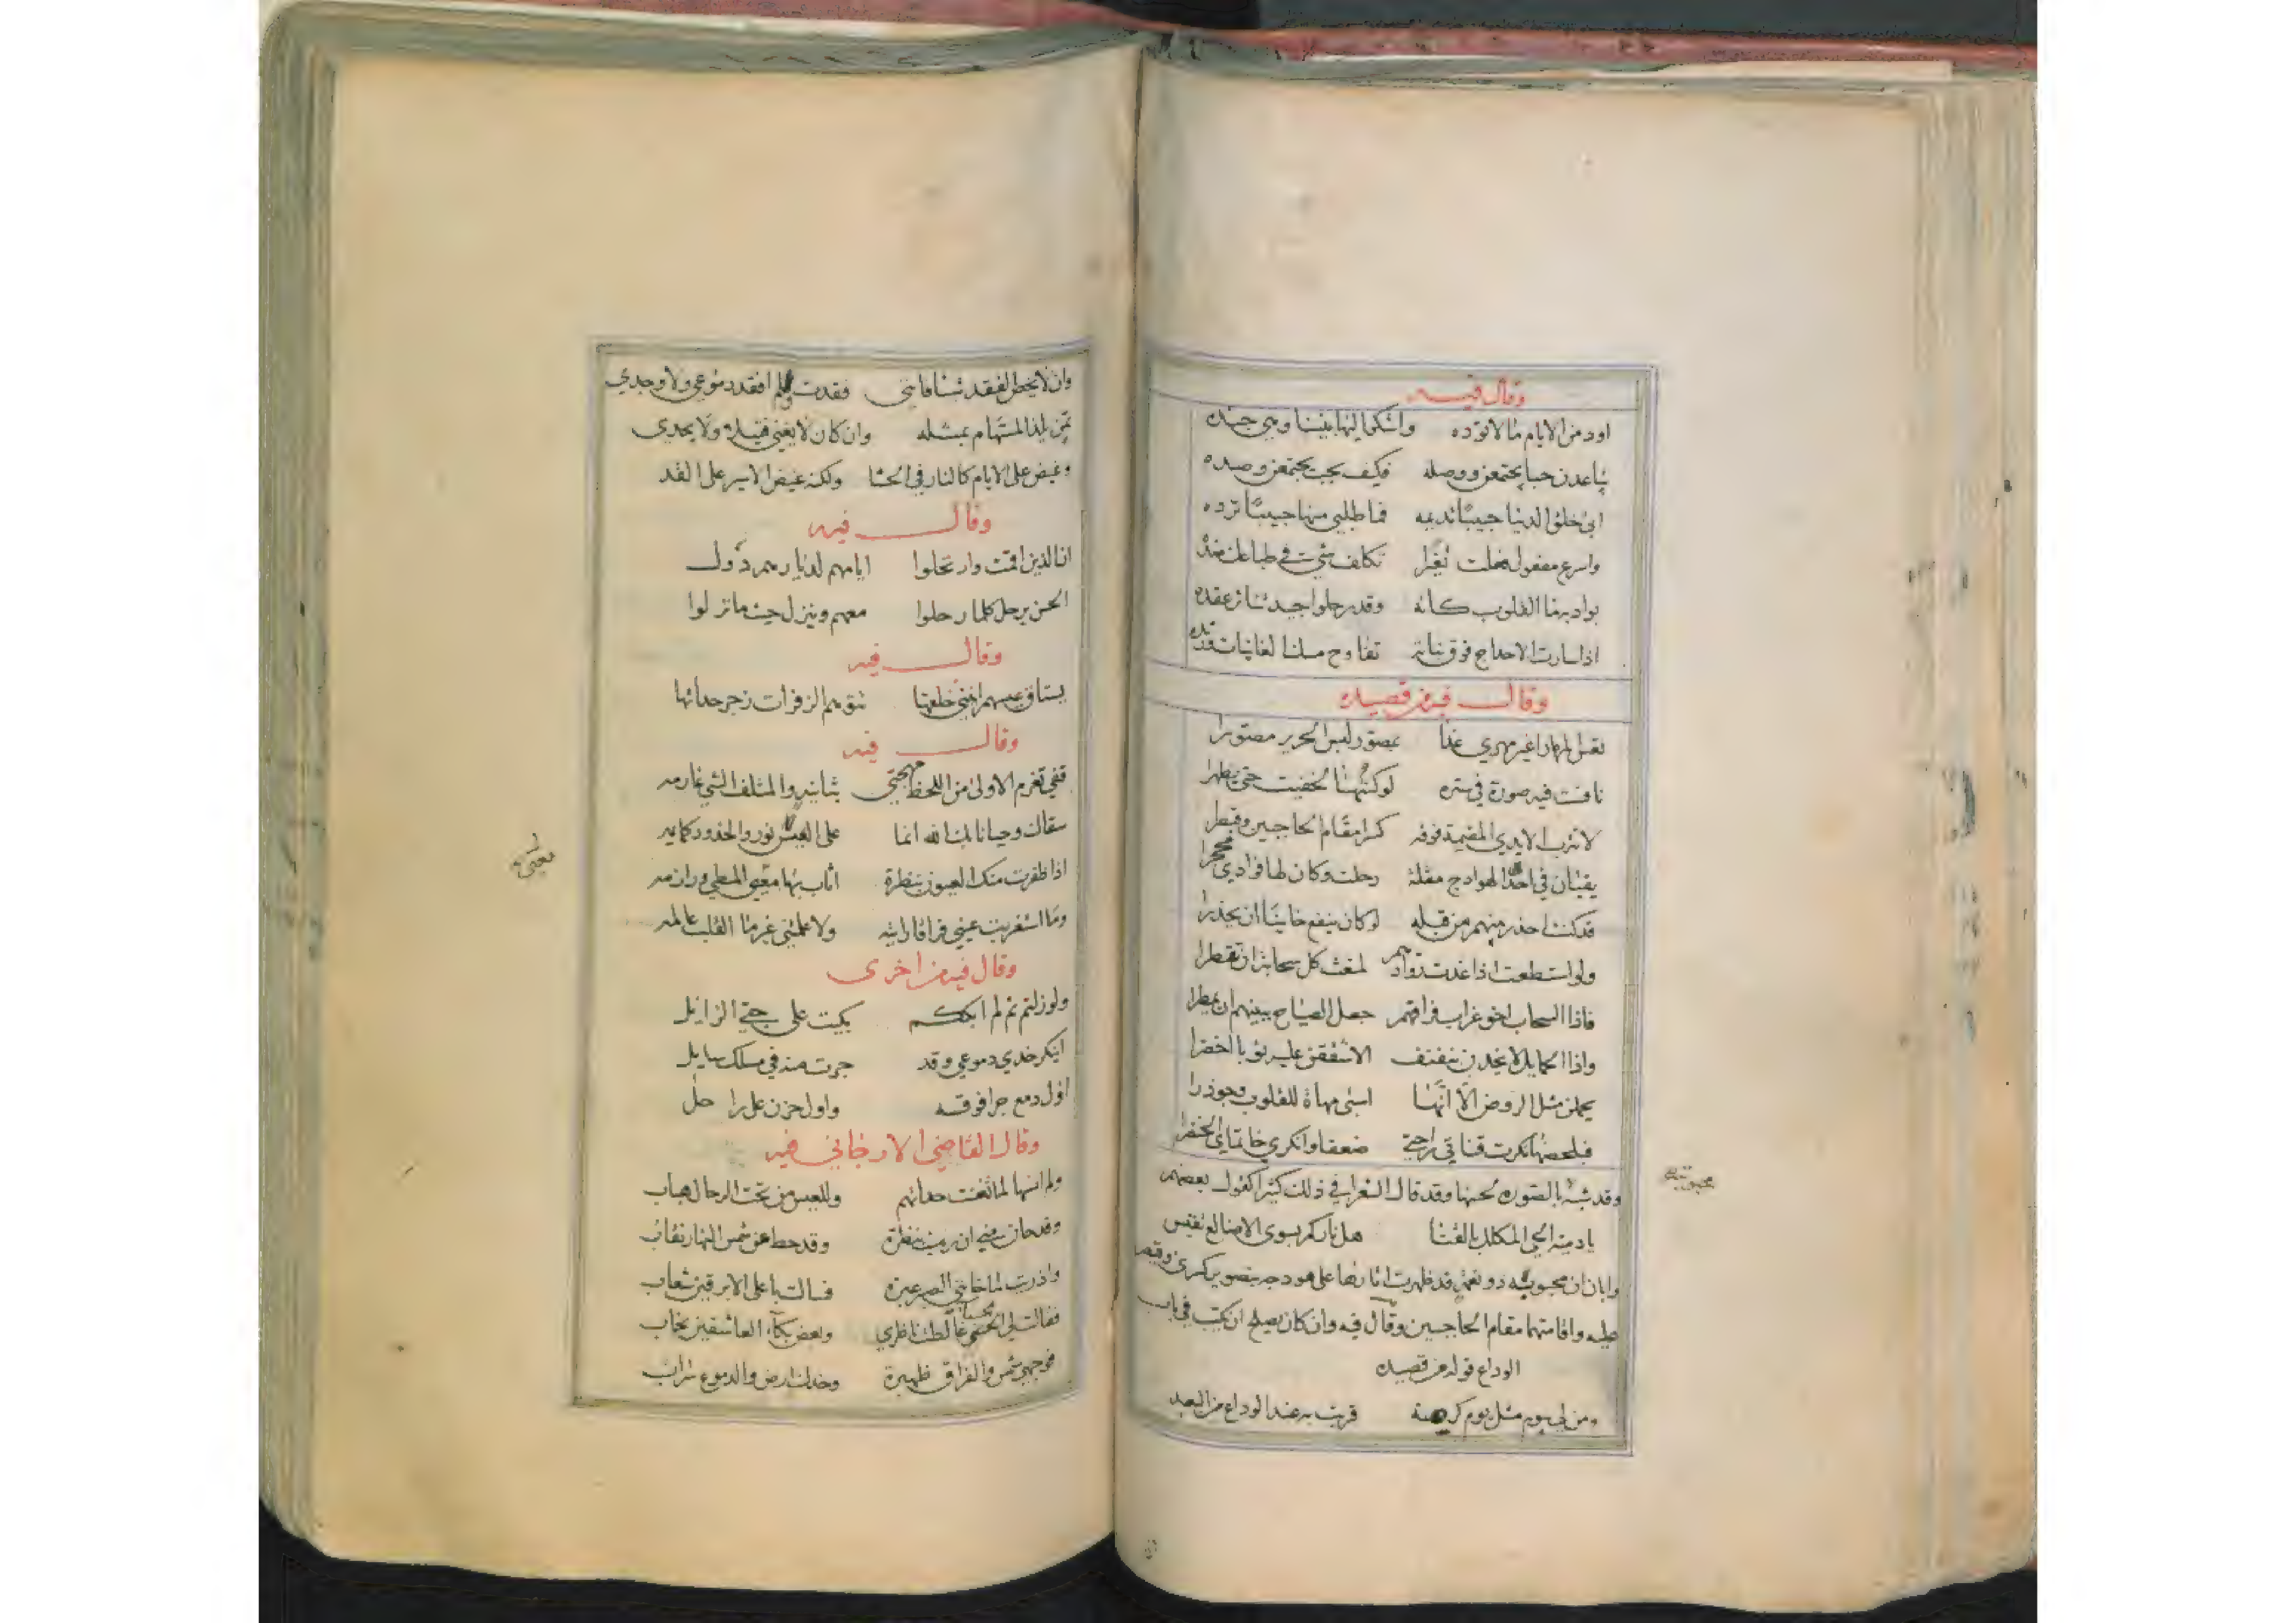 وقال فيه
اود من الايام ما لا توده واشكو اليها بيننا وهي جنده
يباعدن حبا يجتمعن ووصله فكيف بحب يجتمعن وصده
ابى خلق الدنيا حبيبا تديمه فما طلبي منها حبيبا ترده
واسرع مفعول فعلت تغيرا تكلف شيء في طباعك ضده
بواد به ما القلوب كانه وقد رحلوا جيد تناثر عقده
اذا سارت الاحداج فوق نباته تفاوح مسك الغانيات ورنده
وقال فيه من قصيده
نافست فيه صورة في ستره لو كنتها لخفيت حتى يظهرا
لا تترب الايدي المقيمة فوقه كسرى مقام الحاجبين وقيصرا
يقيان في احد الهوادج مقلة رحلت وكان لها فؤادي محجرا
قد كنت احذر بينهم من قبله لو كان ينفع خاينا ان يحذرا
ولو استطعت اذا غدت روادهم لمنعت كل سحابة ان تقطرا
فاذا السحاب اخو غراب فراقهم جعل الصياح ببينهم ان يمطرا
واذا الحمايل لا يخدن بنفنف الا شققن عليه ثوبا اخضرا
يحملن مثل الروض الا انها اسبى مهاة للقلوب وجوذرا
فبلحظها نكرت قناتي راحتي ضعفا وانكر خاتماي الخنصرا
وقد شبه بالصورة لحسنها وقد قال الشعرا في ذلك كثيرا كقول بعضهم
يا دمية الحي المكلل بالقنا هل نار كم بسوى الاضالع تقبس
وابان ان محبوبته ذو نعمة قد ظهرت اثارها على هودجه بتصوير كسرى وقيصر
عليه واقامتهما مقام الحاجبين وقال فيه وان كان يصلح ان يكتب في باب
الوداع قوله من قصيده
ومن لي بيوم مثل يوم كرهته قربت به عند الوداع من البعد
محبوبته
وان لا يخص الفقد شيا فانني فقدت ولم افقد دموعي ولا وجدي
تمن يلذ المستهام بمثله وان كان لا يغني فتيلا ولا يجدي
وغيض على الايام كالنار في الحشا ولكنه غيض الاسير على القد
وقال فيه
ان الذين اقمت وارتحلوا ايامهم لديارهم دول
الحسن يرحل كلما رحلوا معهم وينزل حيث ما نزلوا
وقال فيه
يستاق عيسهم انيني خلفها تتوهم الزفرات زجر حداتها
وقال فيه
قفي تغرم الاولى من اللحظ مهجتي بثانية والمتلف الشي غارمه
سقاك وحيانا بك الله انما على العيس نور والخدور كمايمه
اذا ظفرت منك العيون بنظرة اثاب بها معيي المطي ورازمه
وما استغربت عيني فراقا رايته ولا علمتني غير ما القلب عالمه
وقال فيه من اخرى
ولو زلتم ثم لم ابككم بكيت على حبي الزايل
اينكر خدي دموعي وقد جرت منه في مسلك سايل
اول دمع جرا فوقه واول حزن على راحل
وقال القاضي الارجاني فيه
ولم انسها لما تغنت حداتهم وللعيس من تحت الرحال هباب
وقد حان مني ان رميت بنظرة وقد حط عن شمس النهار نقاب
واذرت لما خانني الصبر عبرة فسالت باعلى الابرقين شعاب
وبعض بكاء العاشقين خلاب
فوجهي شمس والفراق ظهيرة وخدك ارض والدموع سراب